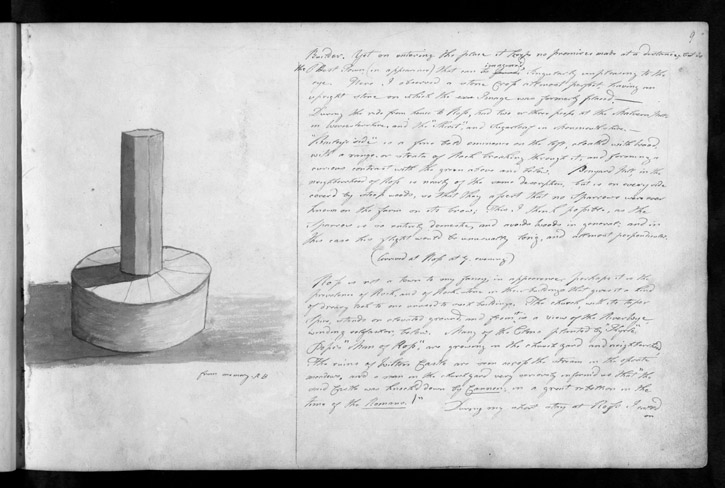 9
Border. Yet on entering the place it keeps no promises made at a distance, but is
the Town (in appearance) that can be imagined, singularly unpleasing to the
eye. Here I observed a stone almost perfect, having an
upright stone on which the Image was formerly placed.—
During the ride from hence to Ross, had two or three peeps at the Malvern hills
in Worcestershire, and the "Skirrid", and Sugarloaf in Monmouthshire.—
is a fine bold eminence on the left, clothed with wood
with a range, or strata of Rock breaking through it, and forming a
curious contrast with the green above and below. Penyard hill, in the
neighbourhood of Ross is nearly of the same description, but is on every side
covered by steep woods, so that they assert that no Sparrows were ever
known on the farm on its brow. This I think possible, as the
Sparrow is so entirely domestic, and avoids woods in general; and in
this case his flight would be unusually long, and almost perpendicular.
(Arrived at Ross at 7 evening)
Ross is not a town to my fancy, in appearance, perhaps it is the
prevalence of Rock, and of Rock stone in their buildings that gives it a kind
of dreary look to one unused to such buildings. The church, with its taper
spire, stands on elevated ground, and from is a view of the Horseshoe
winding below. Many of the Elms planted by
Pope's "Man of Ross," are growing in the churchyard and neighbourhood
The ruins of Wilton Castle are seen across the stream in the opposite
meadows, and a man in the churchyard very seriously informed us that "the
said Castle was knocked down by Cannon, in a great rebellion in the
time of the Romans!" During my short stay at Ross I
on
from memory R H